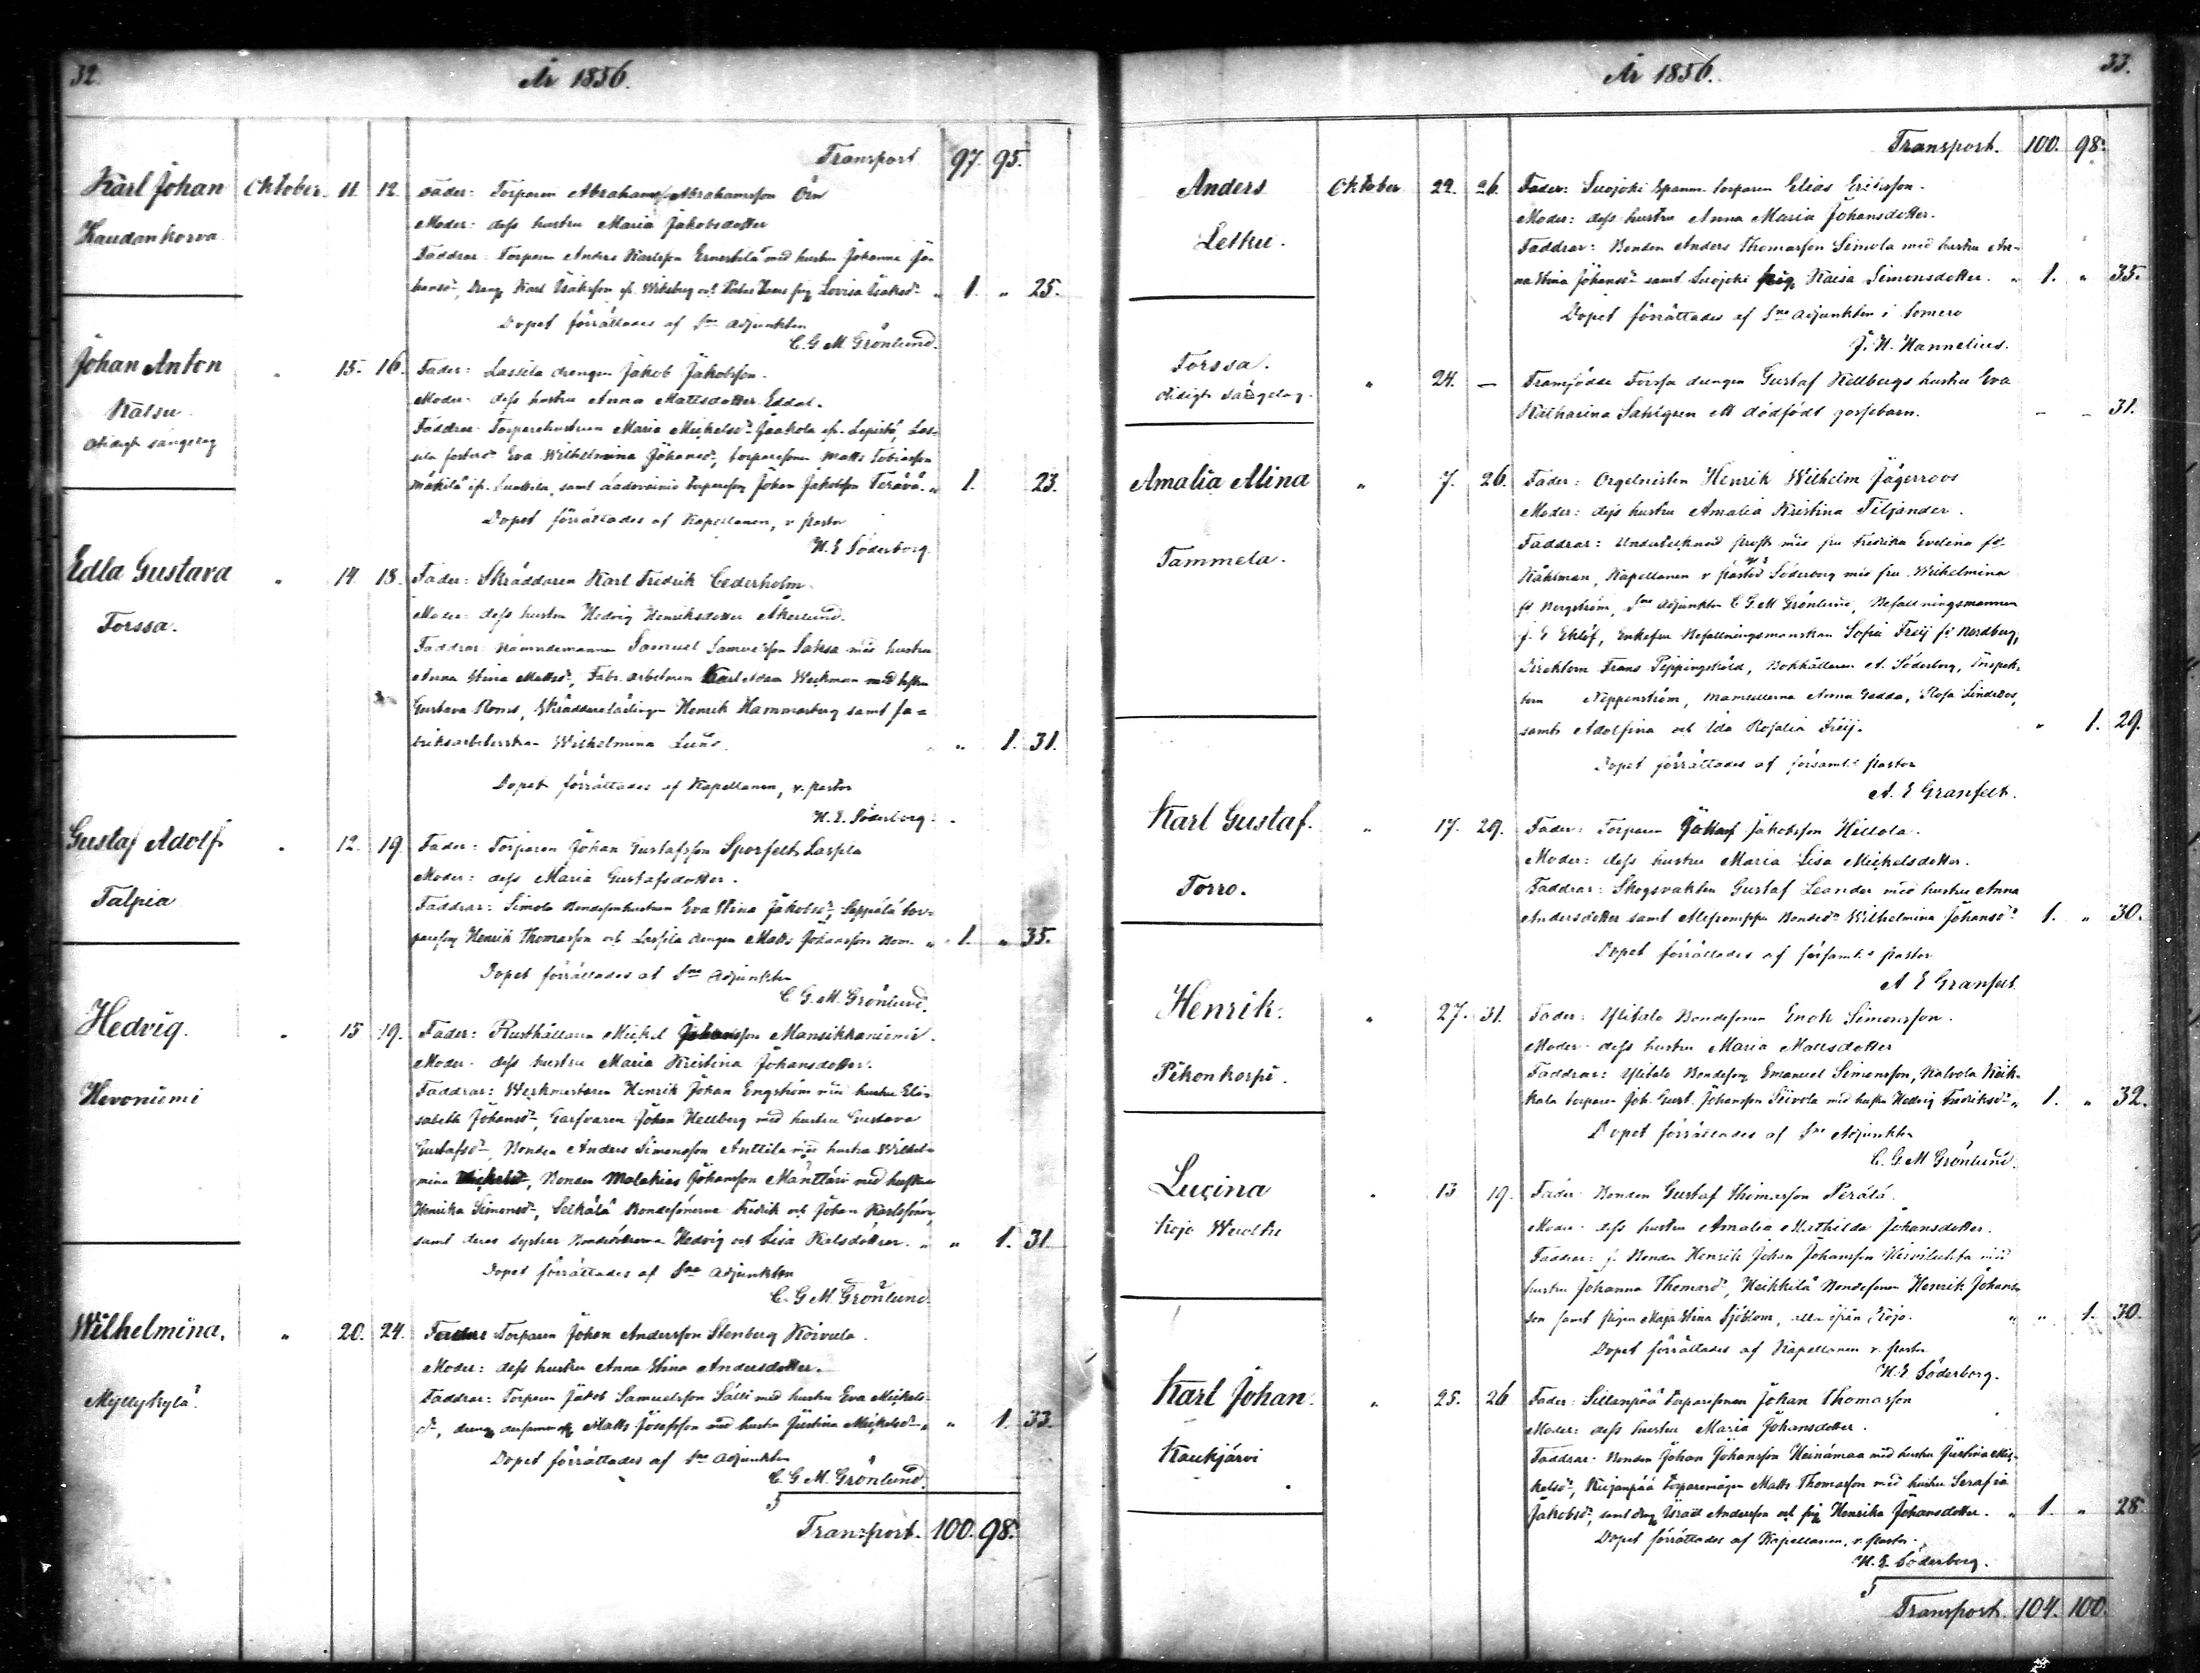 32.
År 1856.
Transport 97. 95.
Karl Johan Oktober. 11. 12. Fader: Torparen Abraham Abrahamsson Örn
Moder: dess hustru Maria Jakobsdotter
Haudankorva
Faddrar: Torparen Anders Karlsson Ernestilä med hustru Johanna Jo-
hansdr, Dreng Karl Isaksson och pig Lovisa Isaksdr " 1. " 25.
Dopet förrättades af Sne Adjunkten
C. G. M. Grönlund.
Johan Anton " 15. 16. Fader: Lassila drengen Jakob Jakobsson.
Moder: dess hustru Anna Mattsdotter Eddal.
Kalsu
oidigt sängelag
Faddrar: Torparehustrun Maria Mickelsdr Jaakola Lepistö, Las-
sila Eva Wilhelmina Johansdr, torparesonen Matts Tobiasson
Mäkilä, samt torpareson Johan Jakobsson Terävä. " 1. 23.
Dopet förrättades af Kapellanen, v. pastor
H. E. Söderborg.
Edla Gustava " 14. 18. Fader: Skräddaren Karl Fredrik Cederholm.
Moder: dess hustru Hedvig Henriksdotter Åkerlund.
Forssa.
Faddrar: Nämndemannen Samuel Samuelsson Saksa med hustru
Anna Stina Mattsdr, Fabr. arbetaren Karl Adam Weckman med hustru
Gustava Roms, Skräddarelärlingen Henrik Hammarberg samt Fa-
briksarbeterskan Wilhelmina Lund. " " 1. 31.
Dopet förrättades af Kapellanen, v. pastor
H. E. Söderborg.
Gustaf Adolf " 12. 19. Fader: Torparen Johan Gustafsson Sporfelt Lassila
Moder: dess Maria Gustafsdotter.
Talpia
Faddrar: Simola Bondesonhustrun Eva Stina Jakobsdr, Seppälä tor-
pareson Henrik Thomasson och Lassila drengen Matts Johansson Bom. " 1. " 35.
Dopet förrättades af Sne Adjunkten
C. G. M. Grönlund.
Hedvig. " 15 19. Fader: Rusthållaren Mickel Johansson Mansikkaniemi.
Moder: dess hustru Maria Kristina Johansdotter.
Hevoniemi
Faddrar: Werkmästaren Henrik Johan Engström med hustru Eli-
sabeth Johansdr, Garfvaren Johan Hellberg med hustru Gustava
Gustafsdr, Bonden Anders Simonsson Anttila med hustru Wilhel-
mina Mickelsdr, Bonden Malakias Johansson Mänttäri med hustru
Henrika Simonsdr, Seikälä Bondesönerne Fredrik och Johan Karlssöner,
samt deras systrar Bondedöttrarna Hedvig och Lisa Kalsdöttrar. " " 1. 31.
Dopet förrättades af Sne Adjunkten
C. G. M. Grönlund.
Wilhelmina. " 20. 24. Fader: Torparen Johan Andersson Stenberg Koivula.
Moder: dess hustru Anna Stina Andersdotter.
Myllykylä
Faddrar: Torparen Jakob Samuelsson Sälli med hustru Eva Mickels-
dr, dreng Matts Josefsson med hustru Justina Mickelsdr " " 1. 33.
Dopet förrättades af Sne Adjunkten
C. G. M. Grönlund.
Transport. 100. 98.
33.
År 1856.
Transport. 100. 98.
Anders Oktober 22. 26. Fader: Suojoki Spanm. torparen Elias Ericsson.
Moder: dess hustru Anna Maria Johansdotter.
Letku.
Faddrar: Bonden Anders Thomasson Simola med hustru An-
na Stina Johansdr samt Suojoki pig Kaisa Simonsdotter. " 1. " 35.
Dopet förrättades af Sne Adjunkten i Somero
J. H. Hannelius.
Forssa.
oidigt sängelag.
" 24. — Framfödde Forssa drengen Gustaf Kellbergs hustru Eva
Katharina Sahlgren ett dödfödt gossebarn. - - 31.
Amalia Alina " 7. 26. Fader: Orgelnisten Henrik Wilhelm Jägerroos
Moder: dess hustru Amalia Kristina Tiljander.
Tammela.
Faddrar: Undertecknad prost med fru Fredrika Evelina fd
Kåhlman, Kapellanen v. pastor Söderborg med fru Wilhelmina
fd Bergström, Sne Adjunkten C. G. M. Grönlund, Befallningsmannen
J. E Eklöf, Enkefru Befallningsmanskan Sofia Freij fd Nordberg,
Direktorn Frans Pippingsköld, Bokhållaren A. Söderborg, Inspek-
torn Nippenström, Mamsellerna Anna Gadda, Rosa Lindroos,
samt Adolfina och Ida Rosalia Freij. " 1. 29.
Dopet förrättades af församl:s pastor
A. E Granfelt.
Karl Gustaf. " 17. 29. Fader: Torparen Johan Jakobsson Hillola.
Moder: dess hustru Maria Lisa Mickelsdotter.
Torro.
Faddrar: Skogsvakten Gustaf Leander med hustru Anna
Andersdotter samt Bondedr Wilhelmina Johansdr 1. " 30.
Dopet förrättades af församl:s pastor
A. E Granfelt.
Henrik. " 27. 31. Fader: Ylitalo Bondesonen Enok Simonsson.
Moder: dess hustru Maria Mattsdotter
Pikonkorpi.
Faddrar: Ylitalo Bondeson Emanuel Simonsson, Kalvola Keik-
kala torparen Joh. Gust. Johansson Seivola med hustru Hedvig Fredriksdr " 1. " 32.
Dopet förrättades af Sne Adjunkten
C. G. M Grönlund.
Lucina " 13 19. Fader: Bonden Gustaf Thomasson Perälä.
Moder: dess hustru Amalia Mathilda Johansdotter.
Kojo
Faddrar: f. Bonden Henrik Johan Johansson med
hustru Johanna Thomasdr, Heikkilä Bondesonen Henrik Johans-
son samt pigan Maja Stina Sjöblom, alla från Kojo. " " 1. 30.
Dopet förrättades af Kapellanen v. pastor
H. E. Söderborg.
Karl Johan. " 25. 26. Fader: Sillanpää torparesonen Johan Thomasson
Moder: dess hustru Maria Johansdotter.
Kaukjärvi
Faddrar: Bonden Johan Johansson Heinämaa med hustru Justina Mic-
kelsdr, torparemågen Matts Thomasson med hustru Serafia
Jakobsdr, samt dreng Israel Andersson och pig Henrika Johansdotter. " 1. " 28.
Dopet förrättades af Kapellanen, v. pastor.
H. E. Söderborg.
Transport. 104. 100.